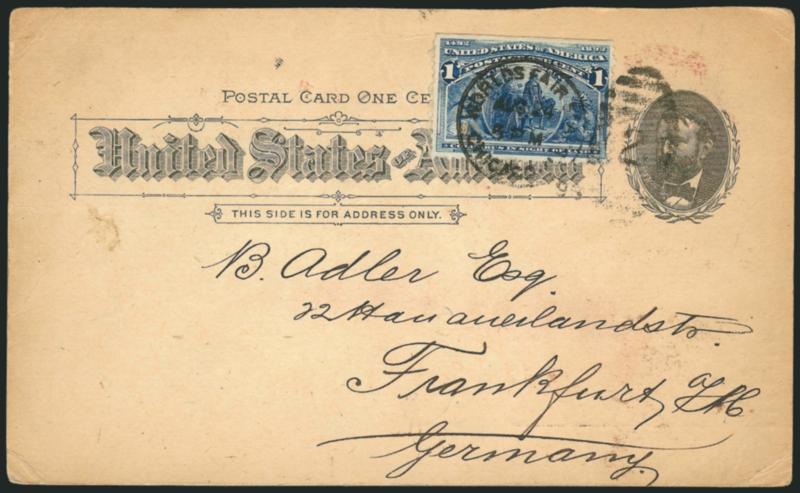 1492 1892
UNITED STATES OF AMERICA
POSTAGE ONE CENT
1 1
COLUMBUS IN SIGHT OF LAND
WORLD'S FAIR
AUG
M
CHICAGO
93
POSTAL CARD ONE CE
United States of America
THIS SIDE IS FOR ADDRESS ONLY.
B. Adler Esq.
22 Hanaueilandstr.
Frankfurt
Germany.